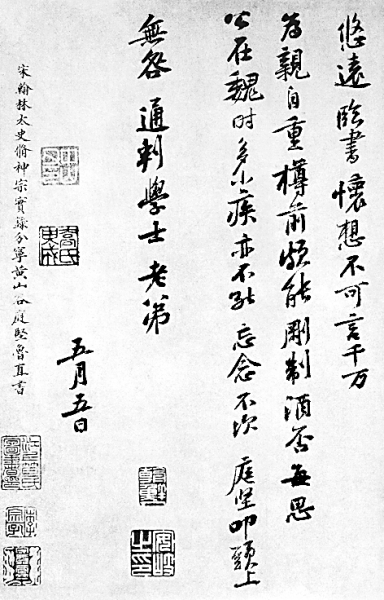 悠遠臨書懷想不可言千万
為親自重樽前頗能剛制酒否每思
公在魏時多小疾亦不能忘念不次庭堅叩頭上
無咎通判學士老弟
五月五日
宋翰林太史脩神宗實錄分寧黃山谷庭堅魯直書